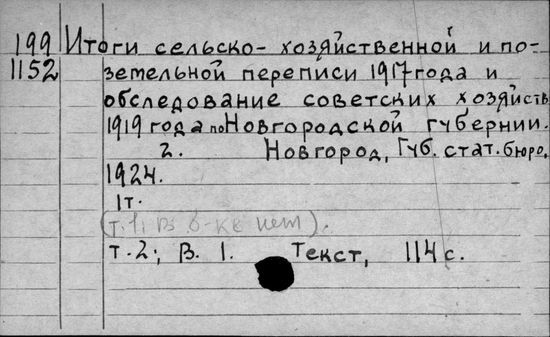 199 Итоги сельско-хозяйственной и по-
1152 земельной переписи 1917 года и
обследование советских хозяйств
1919 года по Новгородской губернии.
2. Новгород, Губ. стат. бюро,
1924.
1т.
(т. 1, в б-ке нет).
т. 2; В. 1. Текст, 114 с.